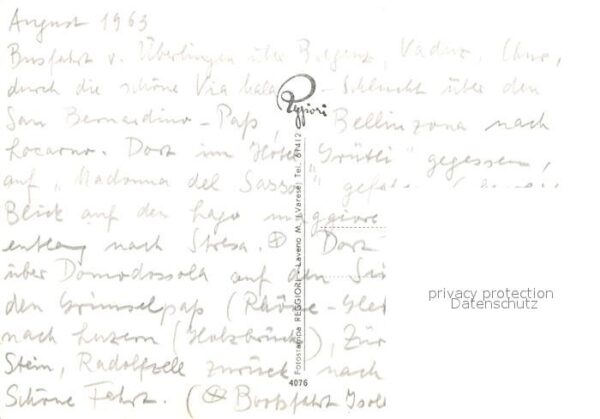 August 1963
Busfahrt v. Überlingen über Bregenz, Vaduz, Chur,
durch die schöne Via Mala - Schlucht über den
San Bernardino-Paß, Bellinzona nach
Locarno. Dort im "Hotel Grütli" gegessen,
auf "Madonna del Sasso"
Blick auf den Lago maggiore
entlang nach Stresa. ⊗ Dort
über Domodossola auf den
den Grimselpaß (Rhône-Glet
nach Luzern (Holzbrücke), Zür
Stein, Radolfzell zurück nach
Schöne Fahrt. (⊗ Bootsfahrt Isola
Reggiori
Fotostampa REGGIORI - Laveno M. (Varese) Tel. 67412
4076
privacy protection
Datenschutz